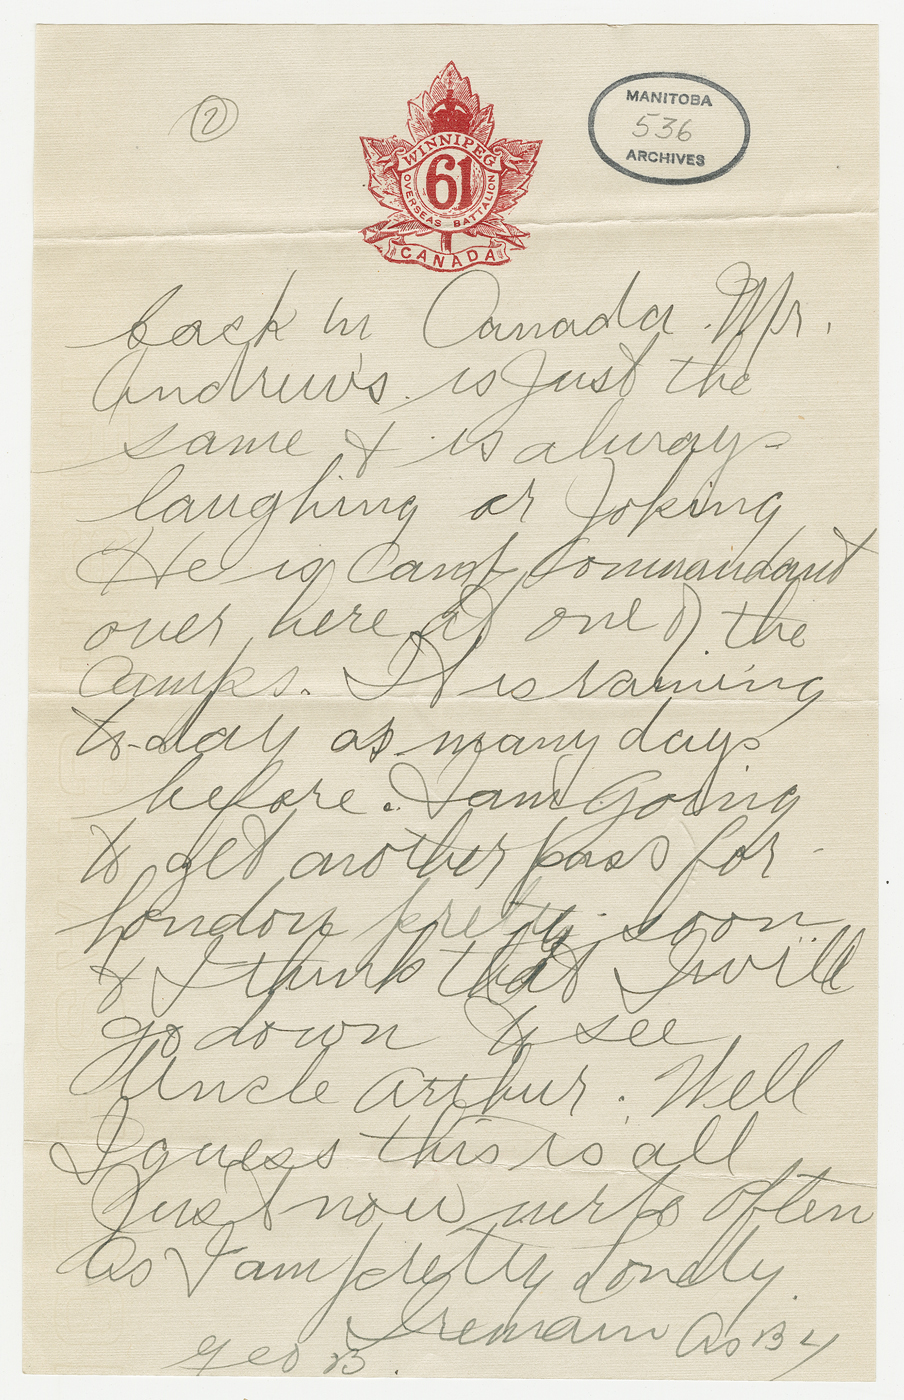 2
WINNIPEG
61
OVERSEAS BATTALION
CANADA
MANITOBA
536
ARCHIVES
back in Canada. Mr.
Andrews. is Just the
same & is always
laughing or Joking
He is Camp Commandant
over here at one of the
Camps. It is raining
to-day as many days
before. I am Going
to get another pass for
London pretty soon
& I think that I will
go down to see
Uncle Arthur. Well
I guess this is all
Just now write often
as I am pretty lonely.
I remain As B 4
Geo B.